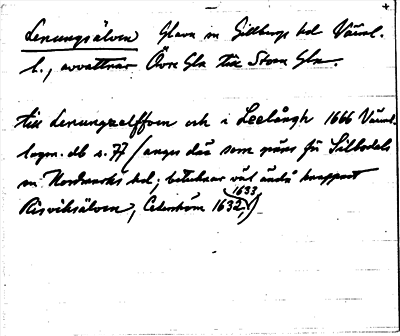 Lenungsälven Glava sn Gillbergs hd Värml.
l., avvattnar Övre Gla till Stora Gla.
till Lenungzelffwen och i Leelångh 1666 Värml.
lagm. db s. 77 (anges där som gräns för Silbodals
sn Nordmarks hd; betecknar väl ändå knappast
Risviksälven, Cederström 1632, 1633)